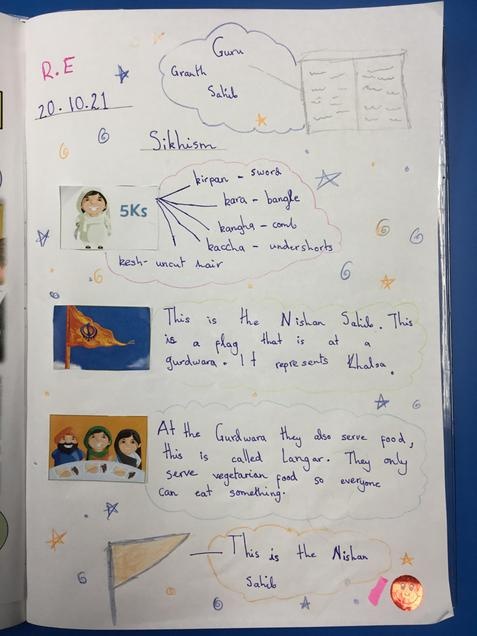 R.E
20.10.21
Guru
Granth
Sahib
Sikhism
5Ks
kirpan - sword
kara - bangle
kangha - comb
kaccha - undershorts
kesh - uncut hair
This is the Nishan Sahib. This
is a flag that is at a
gurdwara. It represents Khalsa.
At the Gurdwara they also serve food,
this is called Langar. They only
serve vegetarian food so everyone
can eat something.
This is the Nishan
Sahib